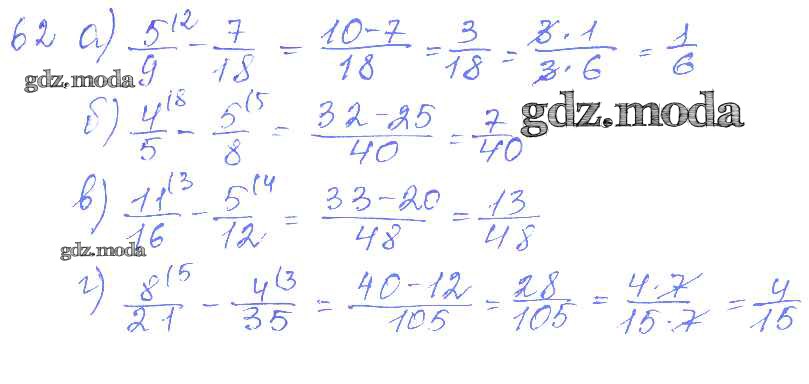 62 а) 5/9 (2 - 7/18 = (10-7)/18 = 3/18 = (3·1)/(3·6) = 1/6
gdz.moda
б) 4/5 (8 - 5/8 (5 = (32-25)/40 = 7/40 gdz.moda
в) 11/16 (3 - 5/12 (4 = (33-20)/48 = 13/48
gdz.moda
г) 8/21 (5 - 4/35 (3 = (40-12)/105 = 28/105 = (4·7)/(15·7) = 4/15